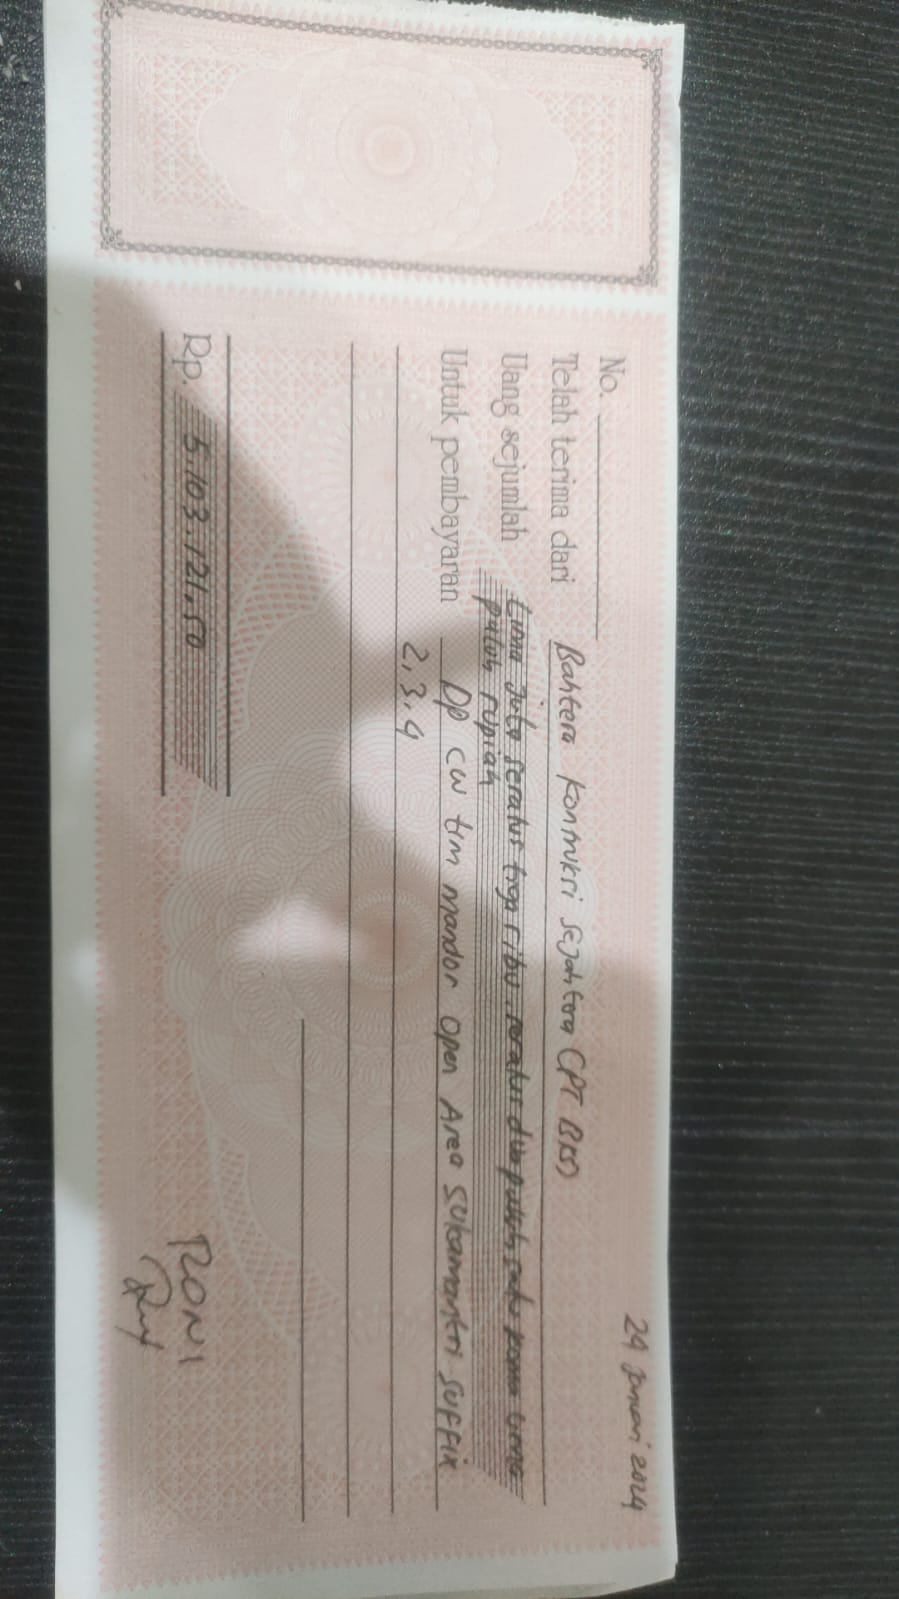 24 Januari 2024
No.
Telah terima dari Bahtera Kontruksi Sejahtera (PT BKS)
Uang sejumlah Lima Juta seratus tiga ribu seratus dua puluh satu koma
puluh rupiah
Untuk pembayaran DP CW tim mandor open Area Sukamantri SUFFIX
2,3,4
Rp. 5.103.121,50
RONI